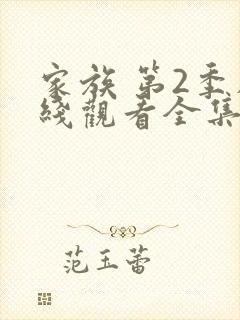 家族 第2季
綫觀看全集
范玉蕾